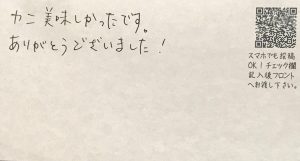 カニ美味しかったです。
ありがとうございました！
スマホでも投稿
OK！チェック欄
記入後フロント
へお渡し下さい。